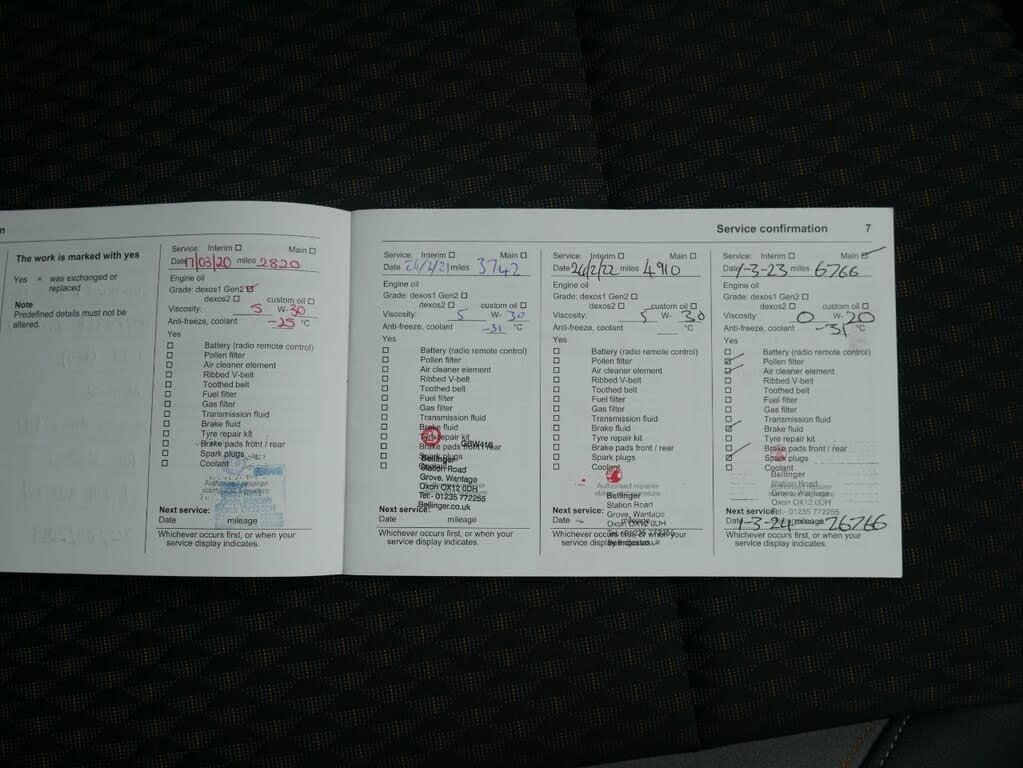 n
The work is marked with yes
Yes = was exchanged or
replaced
Note
Predefined details must not be
altered.
Service: Interim ☐ Main ☐
Date 17/03/20 miles 2820
Engine oil
Grade: dexos1 Gen2 ☑
dexos2 ☐ custom oil ☐
Viscosity: 5 W- 30
Anti-freeze, coolant -25 °C
Yes
☐ Battery (radio remote control)
☐ Pollen filter
☐ Air cleaner element
☐ Ribbed V-belt
☐ Toothed belt
☐ Fuel filter
☐ Gas filter
☐ Transmission fluid
☐ Brake fluid
☐ Tyre repair kit
☐ Brake pads front / rear
☐ Spark plugs
☐ Coolant
Authorised repairer
Next service:
Date mileage
Whichever occurs first, or when your
service display indicates.
Service confirmation 7
Service: Interim ☐ Main ☐
Date 24/3/21 miles 3742
Engine oil
Grade: dexos1 Gen2 ☐
dexos2 ☐ custom oil ☐
Viscosity: 5 W- 30
Anti-freeze, coolant -31 °C
Yes
☐ Battery (radio remote control)
☐ Pollen filter
☐ Air cleaner element
☐ Ribbed V-belt
☐ Toothed belt
☐ Fuel filter
☐ Gas filter
☐ Transmission fluid
☐ Brake fluid
☐ Tyre repair kit
☐ Brake pads front / rear
☐ Spark plugs
☐ Coolant
GBW416
Bellinger
Station Road
Grove, Wantage
Oxon OX12 0DH
Tel:- 01235 772255
Bellinger.co.uk
Next service:
Date mileage
Whichever occurs first, or when your
service display indicates.
Service: Interim ☐ Main ☐
Date 26/2/22 miles 4910
Engine oil
Grade: dexos1 Gen2 ☐
dexos2 ☐ custom oil ☐
Viscosity: 5 W- 30
Anti-freeze, coolant °C
Yes
☐ Battery (radio remote control)
☐ Pollen filter
☐ Air cleaner element
☐ Ribbed V-belt
☐ Toothed belt
☐ Fuel filter
☐ Gas filter
☐ Transmission fluid
☐ Brake fluid
☐ Tyre repair kit
☐ Brake pads front / rear
☐ Spark plugs
☐ Coolant
Authorised repairer
Bellinger
Station Road
Grove, Wantage
Oxon OX12 0DH
Tel:- 01235 772255
Next service:
Date mileage
Whichever occurs first, or when your
service display indicates.
Service: Interim ☐ Main ☑
Date 1-3-23 miles 6766
Engine oil
Grade: dexos1 Gen2 ☐
dexos2 ☐ custom oil ☐
Viscosity: 0 W- 20
Anti-freeze, coolant -31 °C
Yes
☐ Battery (radio remote control)
☑ Pollen filter
☑ Air cleaner element
☐ Ribbed V-belt
☐ Toothed belt
☐ Fuel filter
☐ Gas filter
☐ Transmission fluid
☑ Brake fluid
☐ Tyre repair kit
☐ Brake pads front / rear
☑ Spark plugs
☐ Coolant
Bellinger
Station Road
Grove, Wantage
Oxon OX12 0DH
Tel:- 01235 772255
Next service:
Date 1-3-24 mileage 26766
Whichever occurs first, or when your
service display indicates.